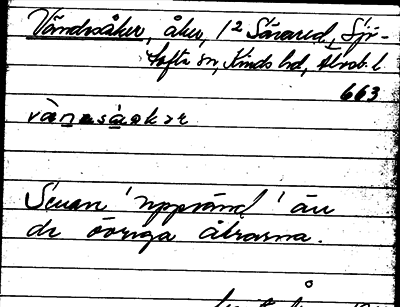 Vändsåker, åker, 1² Sävared, Sjö-
tofta sn, Kinds hd, Älvsb. l.
663
Senare 'uppvänd' än
de övriga åkrarna.